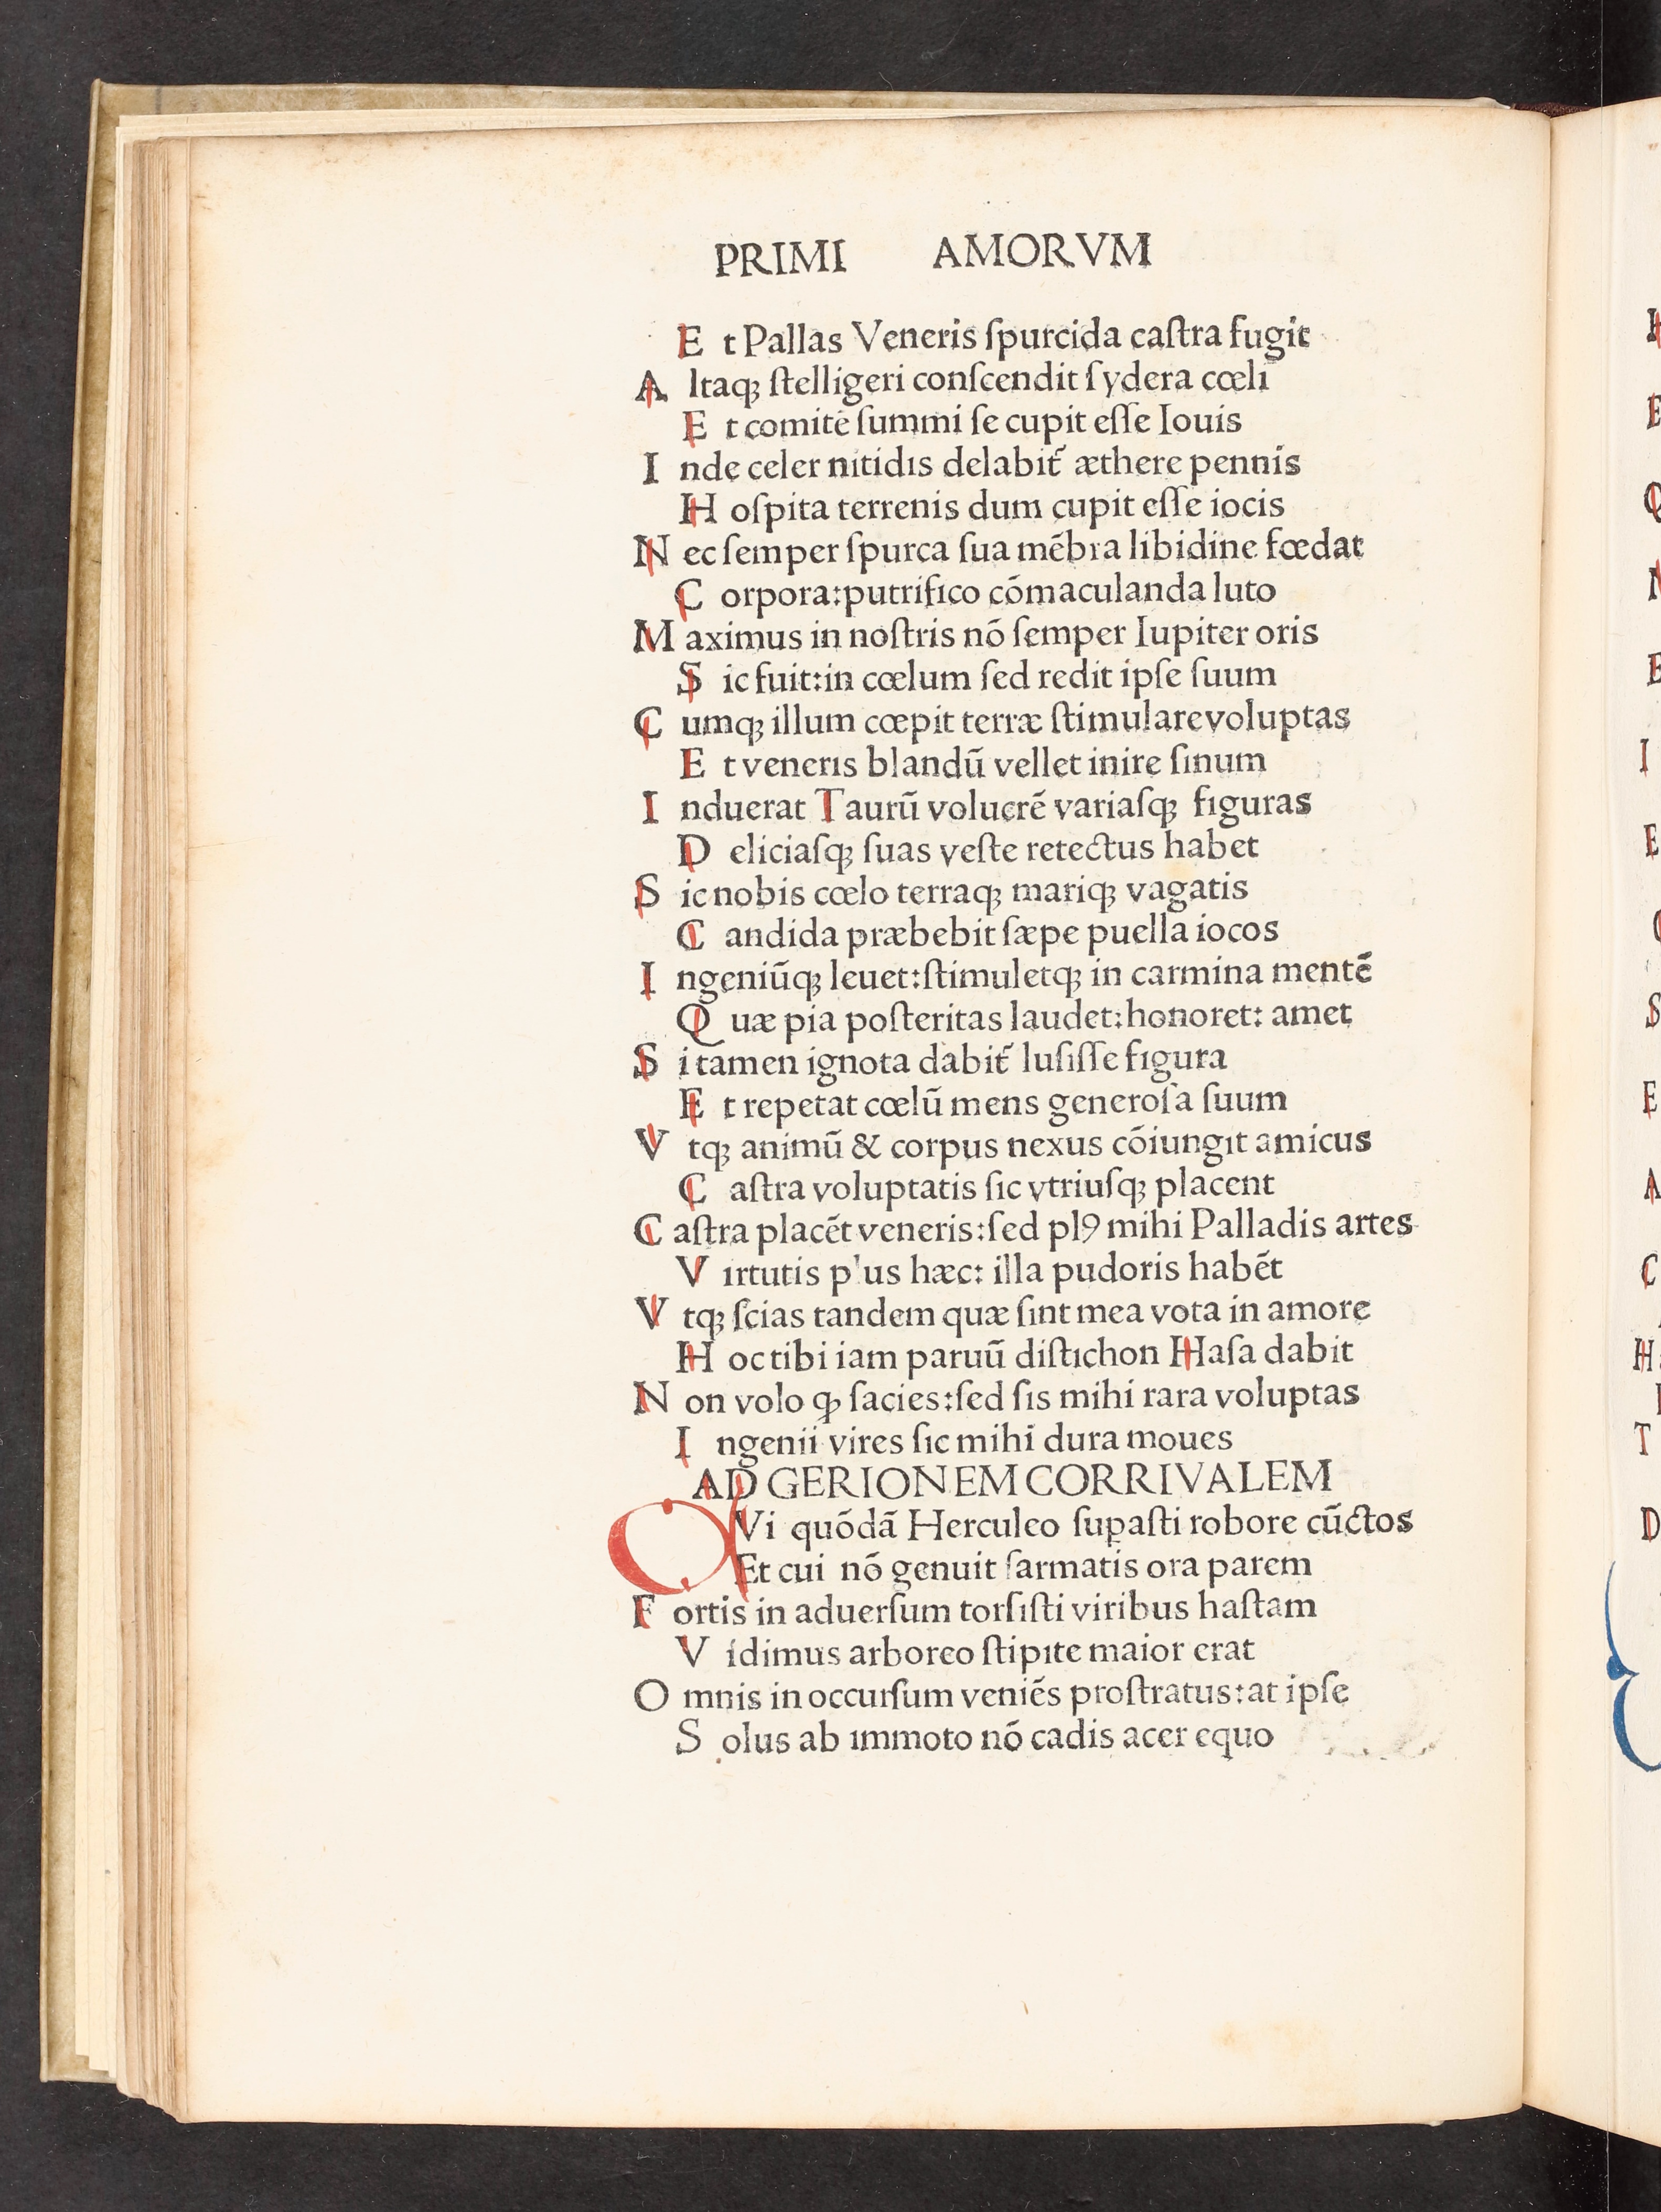 PRIMI AMORVM
E t Pallas Veneris ſpurcida caſtra fugit
A ltaqꝫ ſtelligeri conſcendit ſydera cœli
E t comitē ſummi ſe cupit eſſe Iouis
I nde celer nitidis delabit᷑ æthere pennis
H oſpita terrenis dum cupit eſſe iocis
N ec ſemper ſpurca ſua mēbra libidine fœdat
C orpora:putrifico cōmaculanda luto
M aximus in noſtris nō ſemper Iupiter oris
S ic fuit:in cœlum ſed redit ipſe ſuum
C umqꝫ illum cœpit terræ ſtimulare voluptas
E t veneris blandū vellet inire ſinum
I nduerat Taurū volucrē variaſqꝫ figuras
D eliciaſqꝫ ſuas veſte retectus habet
S ic nobis cœlo terraqꝫ mariqꝫ vagatis
C andida præbebit ſæpe puella iocos
I ngeniūqꝫ leuet:ſtimuletqꝫ in carmina mentē
Q uæ pia poſteritas laudet:honoret: amet
S i tamen ignota dabit᷑ luſiſſe figura
E t repetat cœlū mens generoſa ſuum
V tqꝫ animū & corpus nexus cōiungit amicus
C aſtra voluptatis ſic vtriuſqꝫ placent
C aſtra placēt veneris:ſed plꝰ mihi Palladis artes
V irtutis plus hæc: illa pudoris habēt
V tqꝫ ſcias tandem quæ ſint mea vota in amore
H oc tibi iam paruū diſtichon Haſa dabit
N on volo ꝙ ſacies:ſed ſis mihi rara voluptas
I ngenii vires ſic mihi dura moues
AD GERIONEM CORRIVALEM
QVi quōdā Herculeo ſuꝑaſti robore cūctos
Et cui nō genuit ſarmatis ora parem
F ortis in aduerſum torſiſti viribus haſtam
V idimus arboreo ſtipite maior erat
O mnis in occurſum veniēs proſtratus:at ipſe
S olus ab immoto nō cadis acer equo